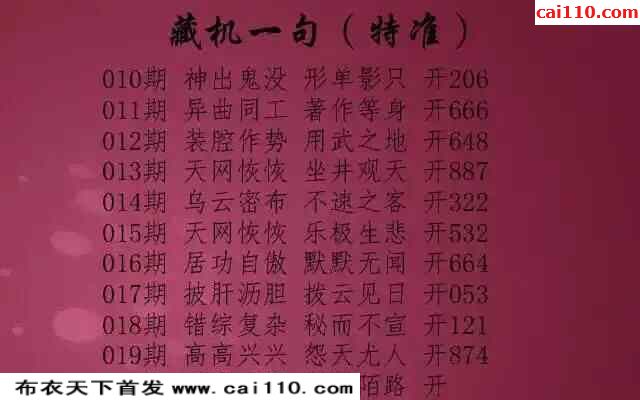 cai110.com
藏机一句（特准）
010期 神出鬼没 形单影只 开206
011期 异曲同工 著作等身 开666
012期 装腔作势 用武之地 开648
013期 天网恢恢 坐井观天 开887
014期 乌云密布 不速之客 开322
015期 天网恢恢 乐极生悲 开532
016期 居功自傲 默默无闻 开664
017期 披肝沥胆 拨云见日 开053
018期 错综复杂 秘而不宣 开121
019期 高高兴兴 怨天尤人 开874
陌路 开
布衣天下首发 www.cai110.com